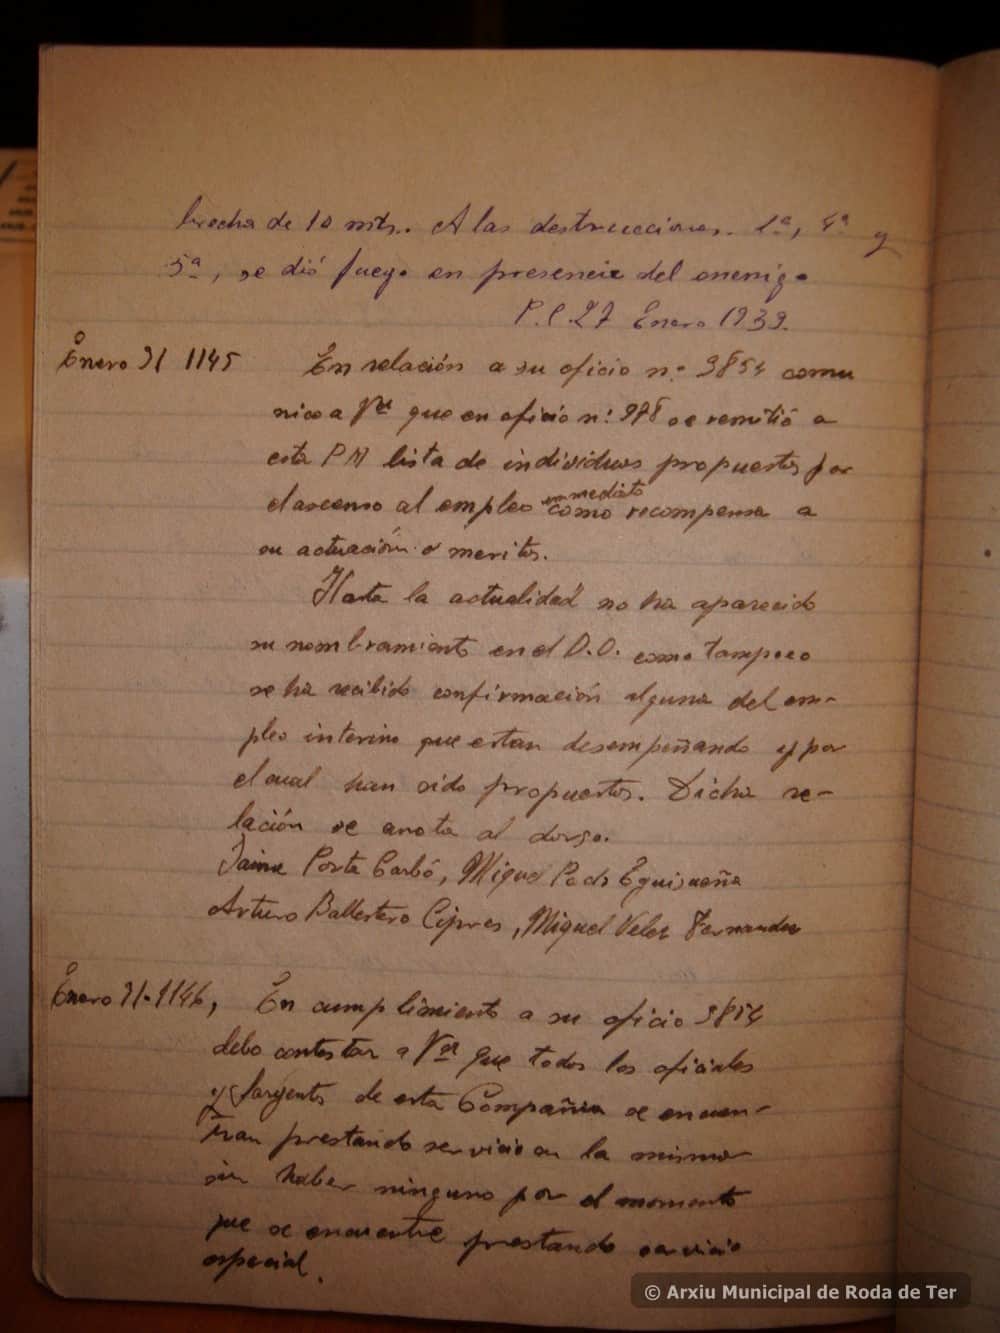 brecha de 10 mts. A las destrucciones. 1ª, 4ª y
5ª, se dió fuego en presencia del enemigo
P.C. 27 Enero 1939.
Enero 31 1145 En relación a su oficio nº 3854 comu
nico a Vd que en oficio nº 978 se remitió a
esta PM lista de individuos propuestos por
el ascenso al empleo inmediato como recompensa a
su actuación o meritos.
Hasta la actualidad no ha aparecido
su nombramiento en el D.O. como tampoco
se ha recibido confirmación alguna del em-
pleo interino que estan desempeñando y por
el cual han sido propuestos. Dicha re-
lación se anota al dorso.
Jaime Porta Carbó, Miguel
Arturo Ballestero Cipres, Miguel Velez Fernandez
Enero 31-1146, En cumplimiento a su oficio 3854
debo contestar a Vd que todos los oficiales
y Sargentos de esta Compañia se encuen-
tran prestando servicio en la misma
sin haber ninguno por el momento
que se encuentre prestando servicio
especial.
© Arxiu Municipal de Roda de Ter